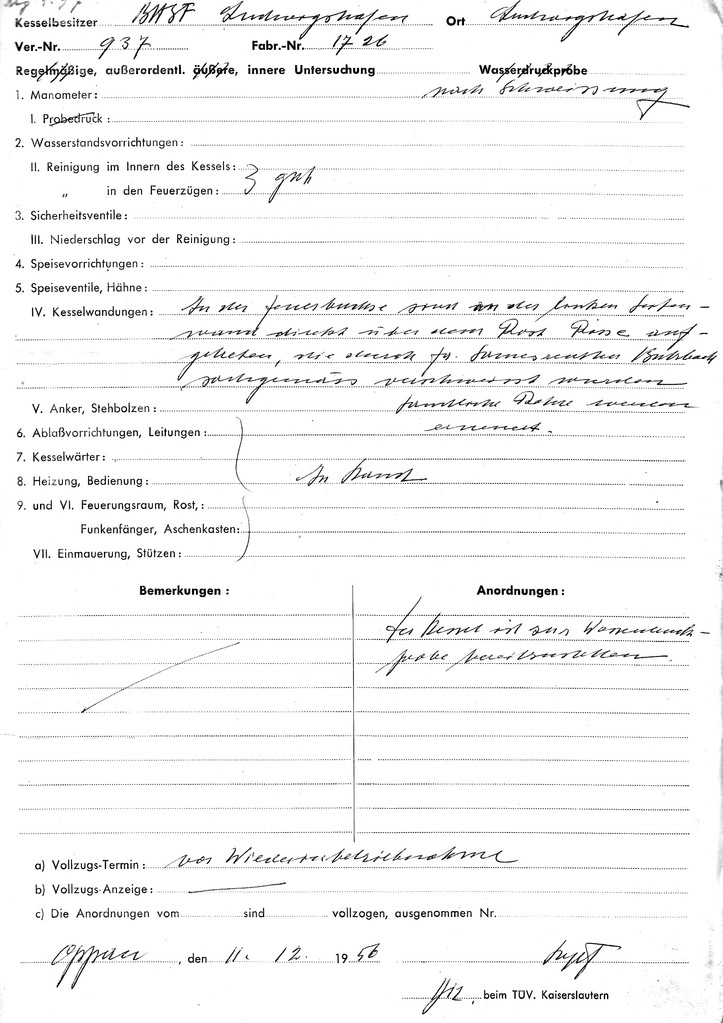 Kesselbesitzer BASF Ludwigshafen Ort Ludwigshafen
Ver.-Nr. 937 Fabr.-Nr. 1726
Regelmäßige, außerordentl. äußere, innere Untersuchung Wasserdruckprobe
1. Manometer: nach Schweissung
I. Probedruck:
2. Wasserstandsvorrichtungen:
II. Reinigung im Innern des Kessels: } gut
„ in den Feuerzügen:
3. Sicherheitsventile:
III. Niederschlag vor der Reinigung:
4. Speisevorrichtungen:
5. Speiseventile, Hähne:
IV. Kesselwandungen: In der Feuerbuchse sind an der linken Seiten-
wand direkt über dem Rost Risse auf-
getreten, die durch Fa. Butzbach
sachgemäss verschweisst wurden
V. Anker, Stehbolzen: Sämtliche Rohre werden
6. Ablaßvorrichtungen, Leitungen: erneuert.
7. Kesselwärter:
8. Heizung, Bedienung: In Stand
9. und VI. Feuerungsraum, Rost,:
Funkenfänger, Aschenkasten:
VII. Einmauerung, Stützen:
Bemerkungen: Anordnungen:
Der Kessel ist zur Wasserdruck-
probe bereitzustellen.
a) Vollzugs-Termin: vor Wiederinbetriebnahme
b) Vollzugs-Anzeige:
c) Die Anordnungen vom sind vollzogen, ausgenommen Nr.
Oppau, den 11. 12. 1956
beim TÜV. Kaiserslautern